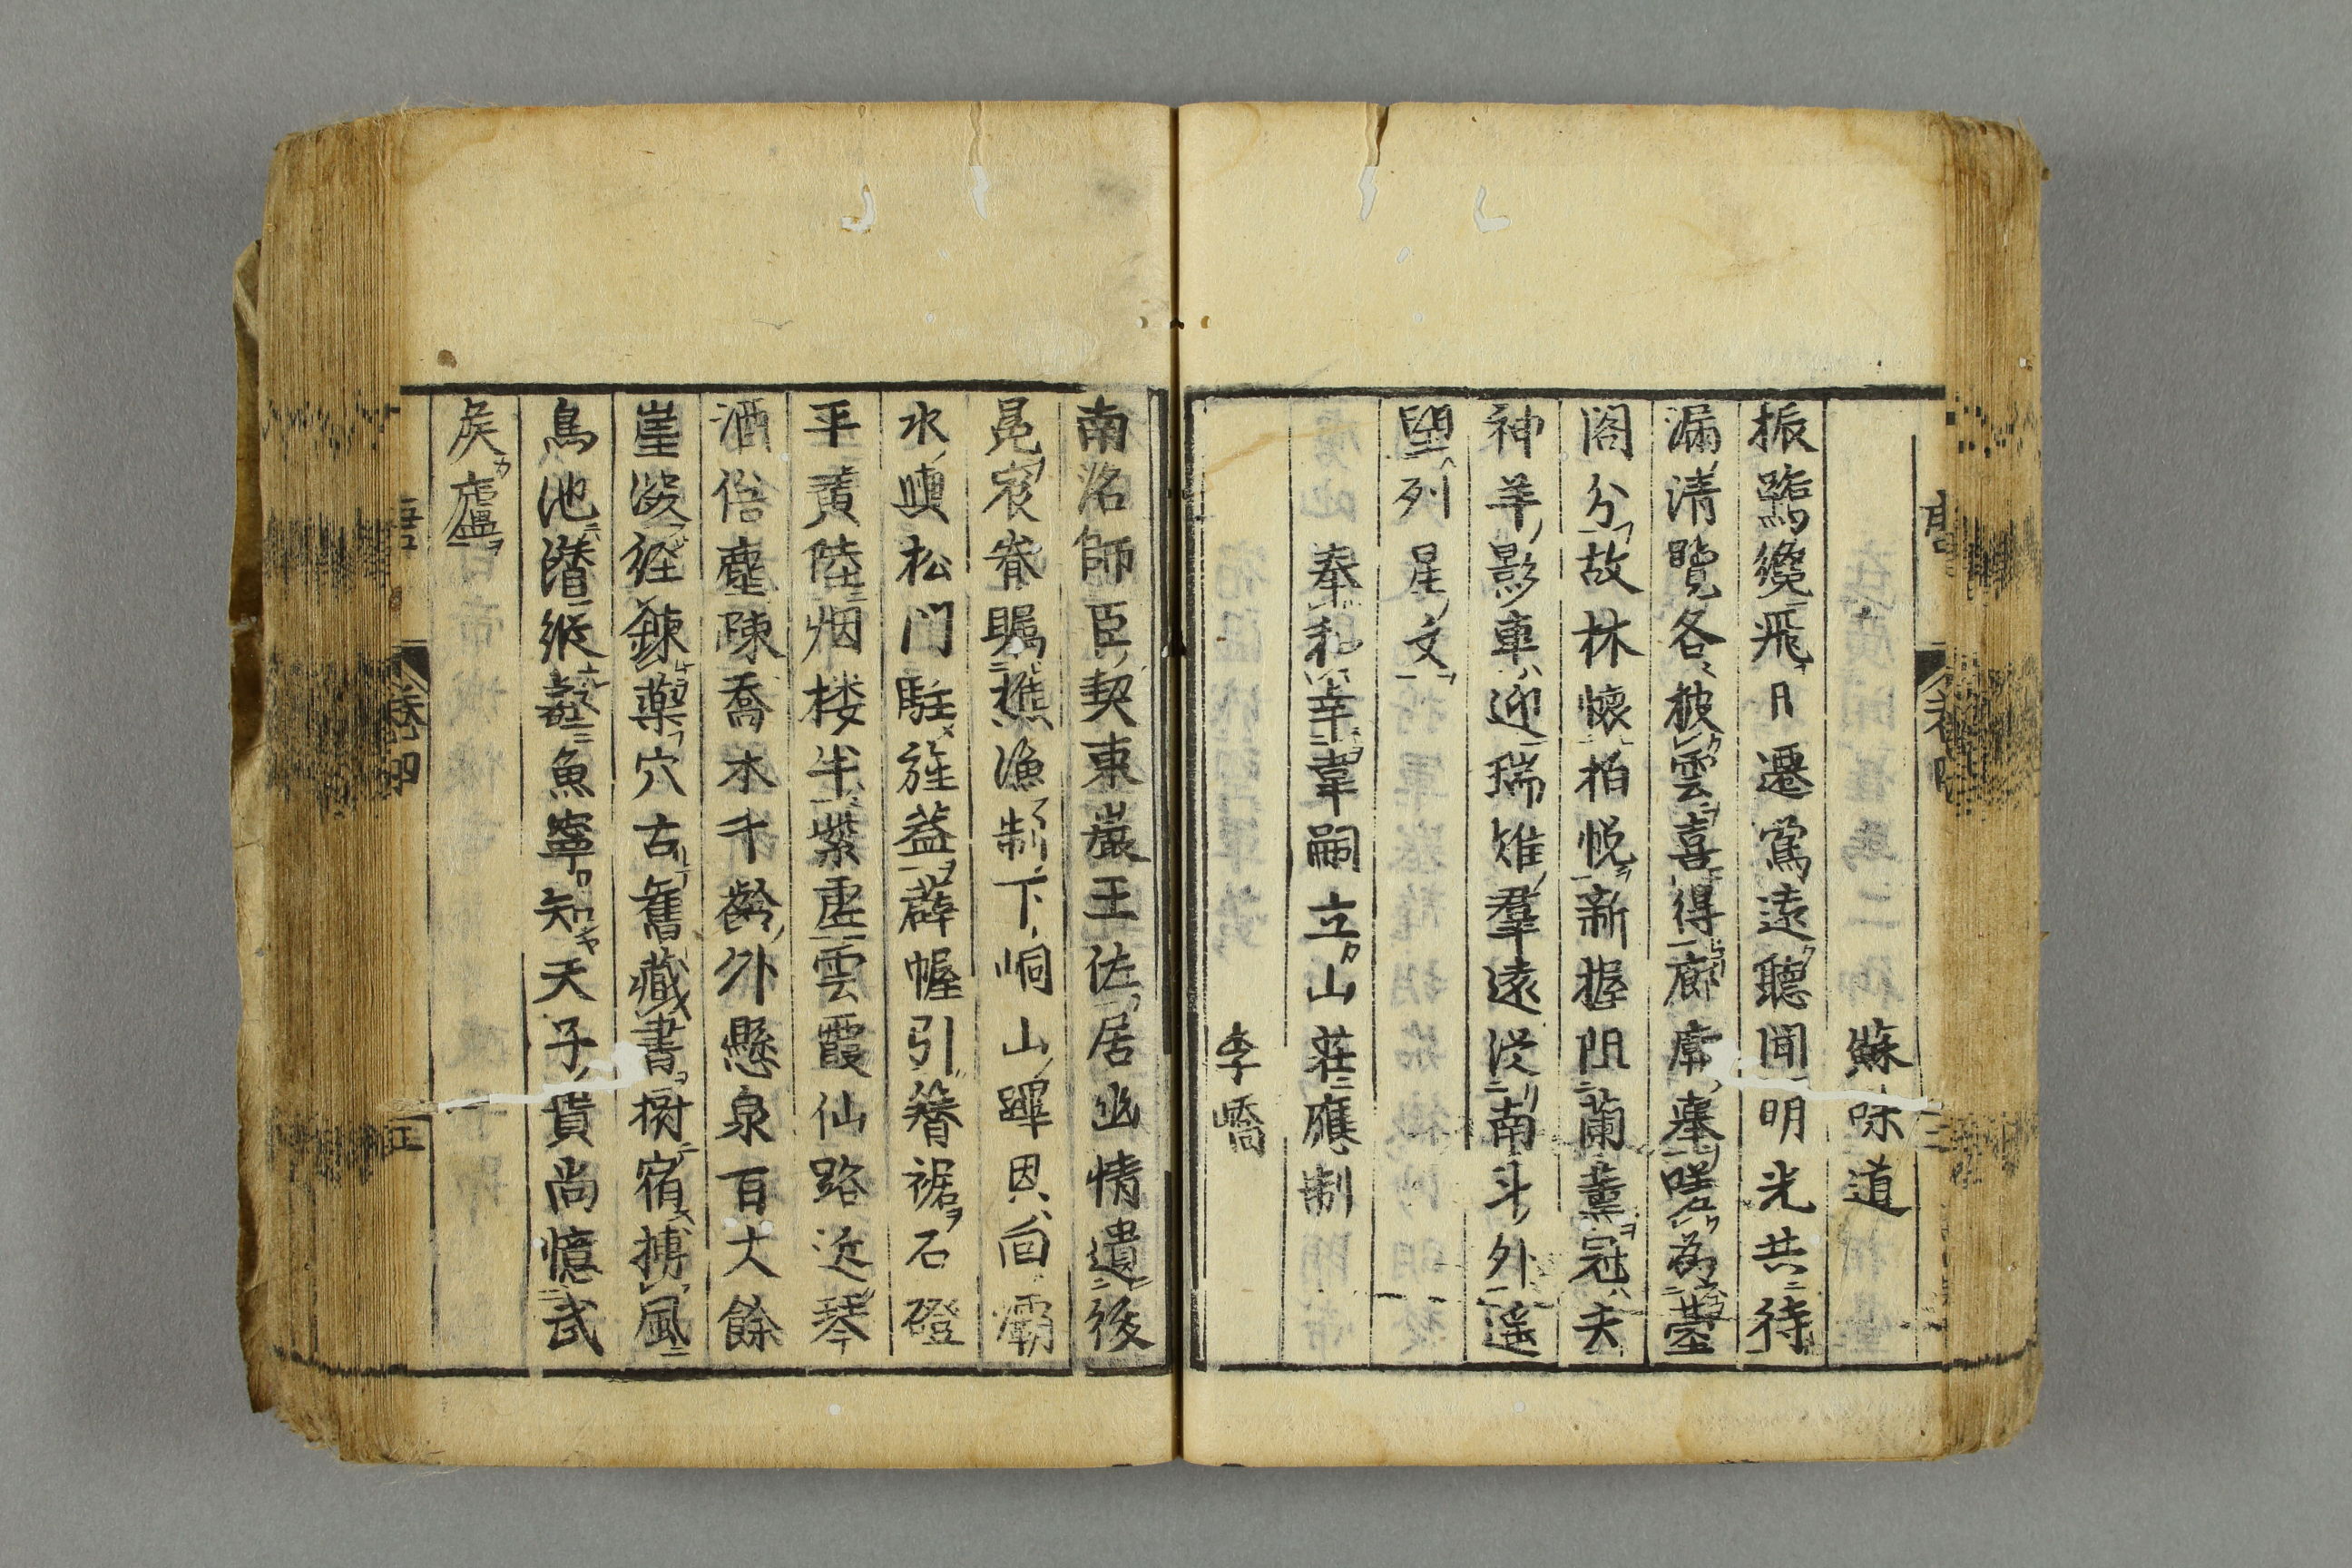 蘇味道
振鷺纔飛日遷鶯遠聽聞明光共待
漏清覽各披雲喜得廊廟舉嗟為臺
閣分故林懐柏悦新握阻蘭薰冠去
神羊影車迎瑞雉羣遠従南斗外遥
望列星文
奉和幸韋嗣立山莊應制
李嶠
南洛師臣契東巖王佐居幽情遺紱
冕宸眷矚樵漁制下峒山蹕恩回灞
水輿松門駐旌蓋薜幄引簪裾石磴
平黄陸烟楼半紫虚雲霞仙路近琴
酒俗塵踈喬木千齢外懸泉百丈餘
崖深経錬藥穴古舊蔵書樹宿摶風
鳥池潜縱壑魚寧知天子貴尚憶武
侯廬